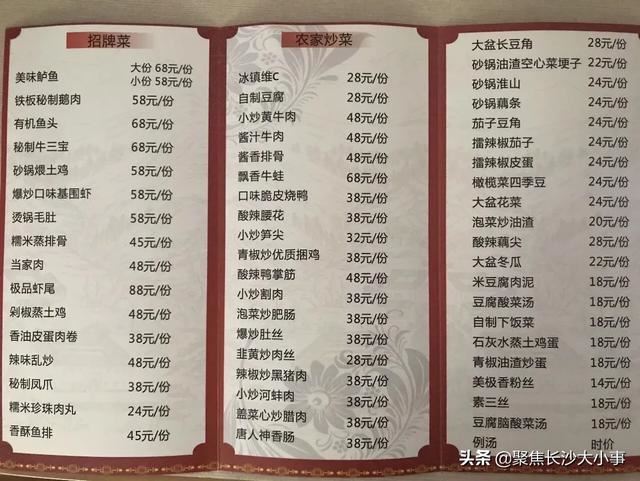 招牌菜
美味鲈鱼 大份 68元/份
小份 58元/份
铁板秘制鹅肉 58元/份
有机鱼头 68元/份
秘制牛三宝 68元/份
砂锅煨土鸡 58元/份
爆炒口味基围虾 58元/份
烫锅毛肚 58元/份
糯米蒸排骨 45元/份
当家肉 48元/份
极品虾尾 88元/份
剁椒蒸土鸡 48元/份
香油皮蛋肉卷 38元/份
辣味乱炒 48元/份
秘制凤爪 38元/份
糯米珍珠肉丸 24元/份
香酥鱼排 45元/份
农家炒菜
冰镇维C 28元/份
自制豆腐 28元/份
小炒黄牛肉 48元/份
酱汁牛肉 48元/份
酱香排骨 48元/份
飘香牛蛙 68元/份
口味脆皮烧鸭 38元/份
酸辣腰花 38元/份
小炒笋尖 32元/份
青椒炒优质捆鸡 38元/份
酸辣鸭掌筋 48元/份
小炒割肉 38元/份
泡菜炒肥肠 38元/份
爆炒肚丝 38元/份
韭黄炒肉丝 28元/份
辣椒炒黑猪肉 38元/份
小炒河蚌肉 38元/份
盖菜心炒腊肉 38元/份
唐人神香肠 38元/份
大盆长豆角 28元/份
砂锅油渣空心菜梗子 22元/份
砂锅淮山 24元/份
砂锅藕条 24元/份
茄子豆角 24元/份
擂辣椒茄子 24元/份
擂辣椒皮蛋 24元/份
橄榄菜四季豆 24元/份
大盆花菜 24元/份
泡菜炒油渣 20元/份
酸辣藕尖 28元/份
大盆冬瓜 22元/份
米豆腐肉泥 18元/份
豆腐酸菜汤 18元/份
自制下饭菜 18元/份
石灰水蒸土鸡蛋 18元/份
青椒油渣炒蛋 18元/份
美极香粉丝 14元/份
素三丝 18元/份
豆腐脑酸菜汤 18元/份
例汤 时价
头条 @聚焦长沙大小事